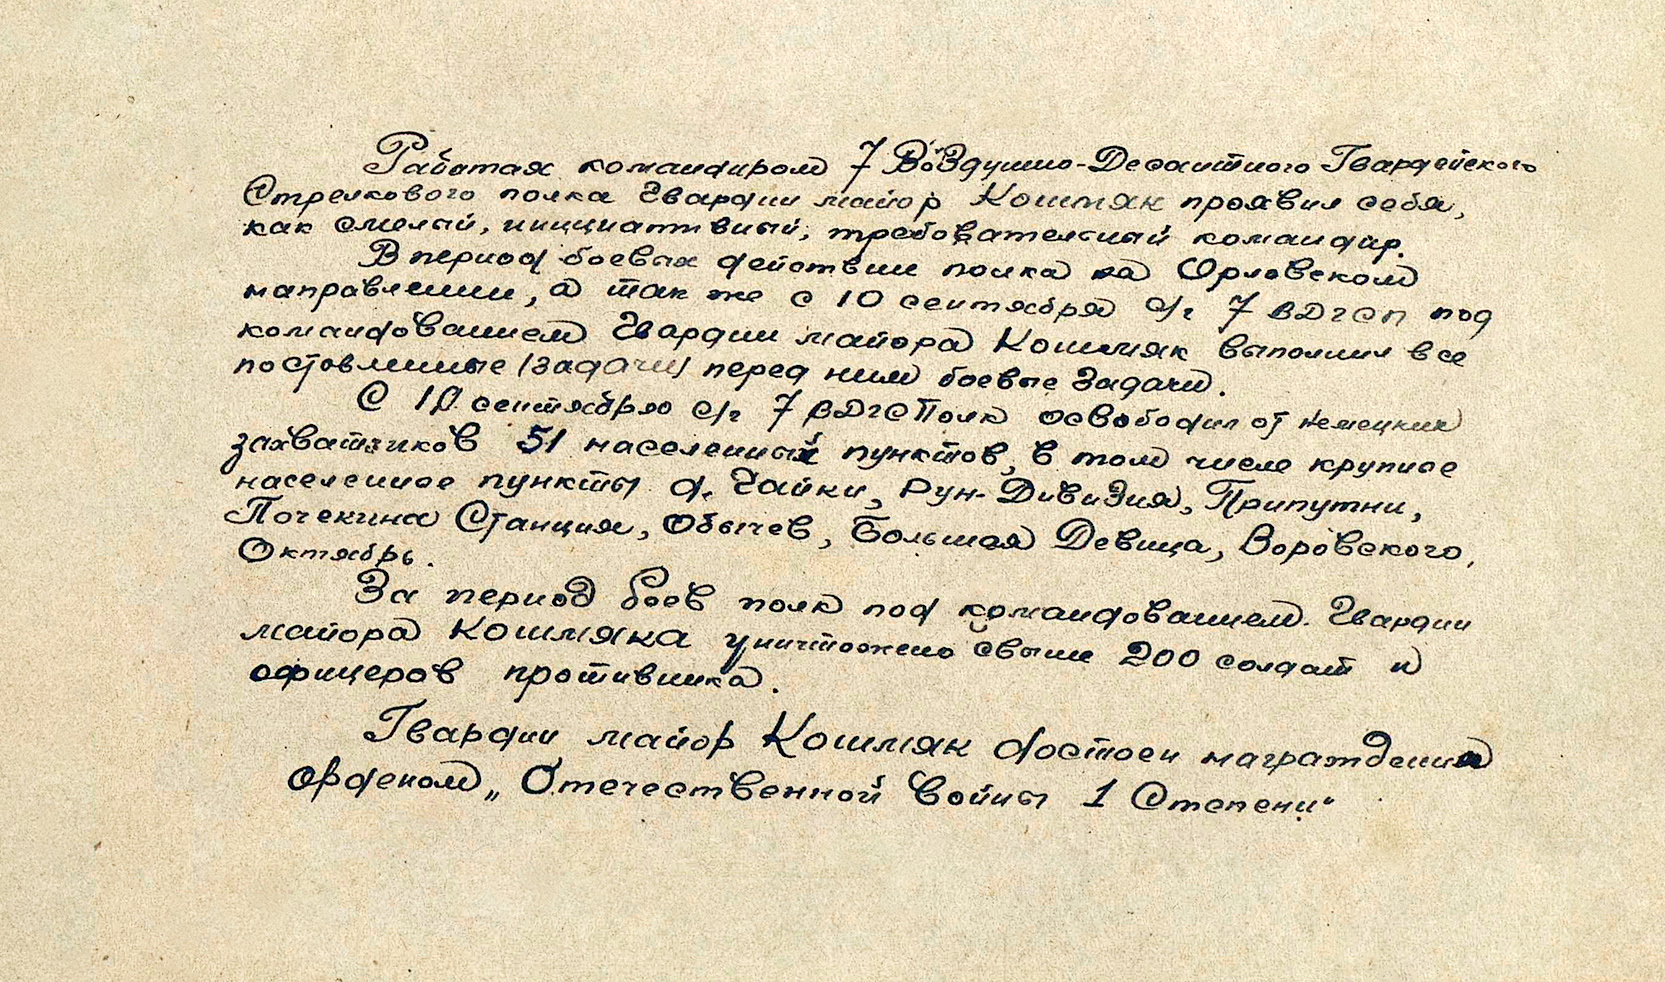 Работая командиром 7 Воздушно-Десантного Гвардейского
Стрелкового полка Гвардии майор Кошмяк проявил себя,
как смелый, инициативный, требовательный командир.
В период боевых действии полка на Орловском
направлении, а так же с 10 сентября с/г 7 вДгСп под
командованием Гвардии майора Кошмяк выполнил все
поставлинные (задачи) перед ним боевые задачи.
С 10 сентября с/г 7 вДгСПолк освободил от немецких
захватчиков 51 населенный пунктов, в том числе крупное
населеное пункты д. Гайки, Рун-Дивизия, Припутни,
Почекина Станция, Обычев, Большая Девица, Воровского,
Октябрь.
За период боев полк под командованием Гвардии
майора Кошмяка уничтожено свыше 200 солдат и
офицеров противника.
Гвардии майор Кошмяк достоен награждения
орденом „Отечественной Войны 1 Степени"